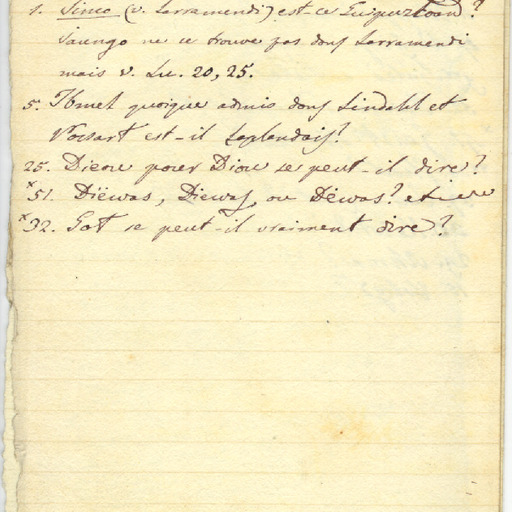 1. Sinco (v. Larramendi) est-ce Guipuzcoan?
Jaungo ne se trouve pas dans Larramendi
mais v. Lu. 20, 25.
5. Ibmel quoique admis dans Lindahl et
est-il Laplandais?
25. Dieou pour Diou se peut-il dire?
×51. Diëwas, Diewas, ou Dëwas? et
×32. Got se peut-il vraiment dire?